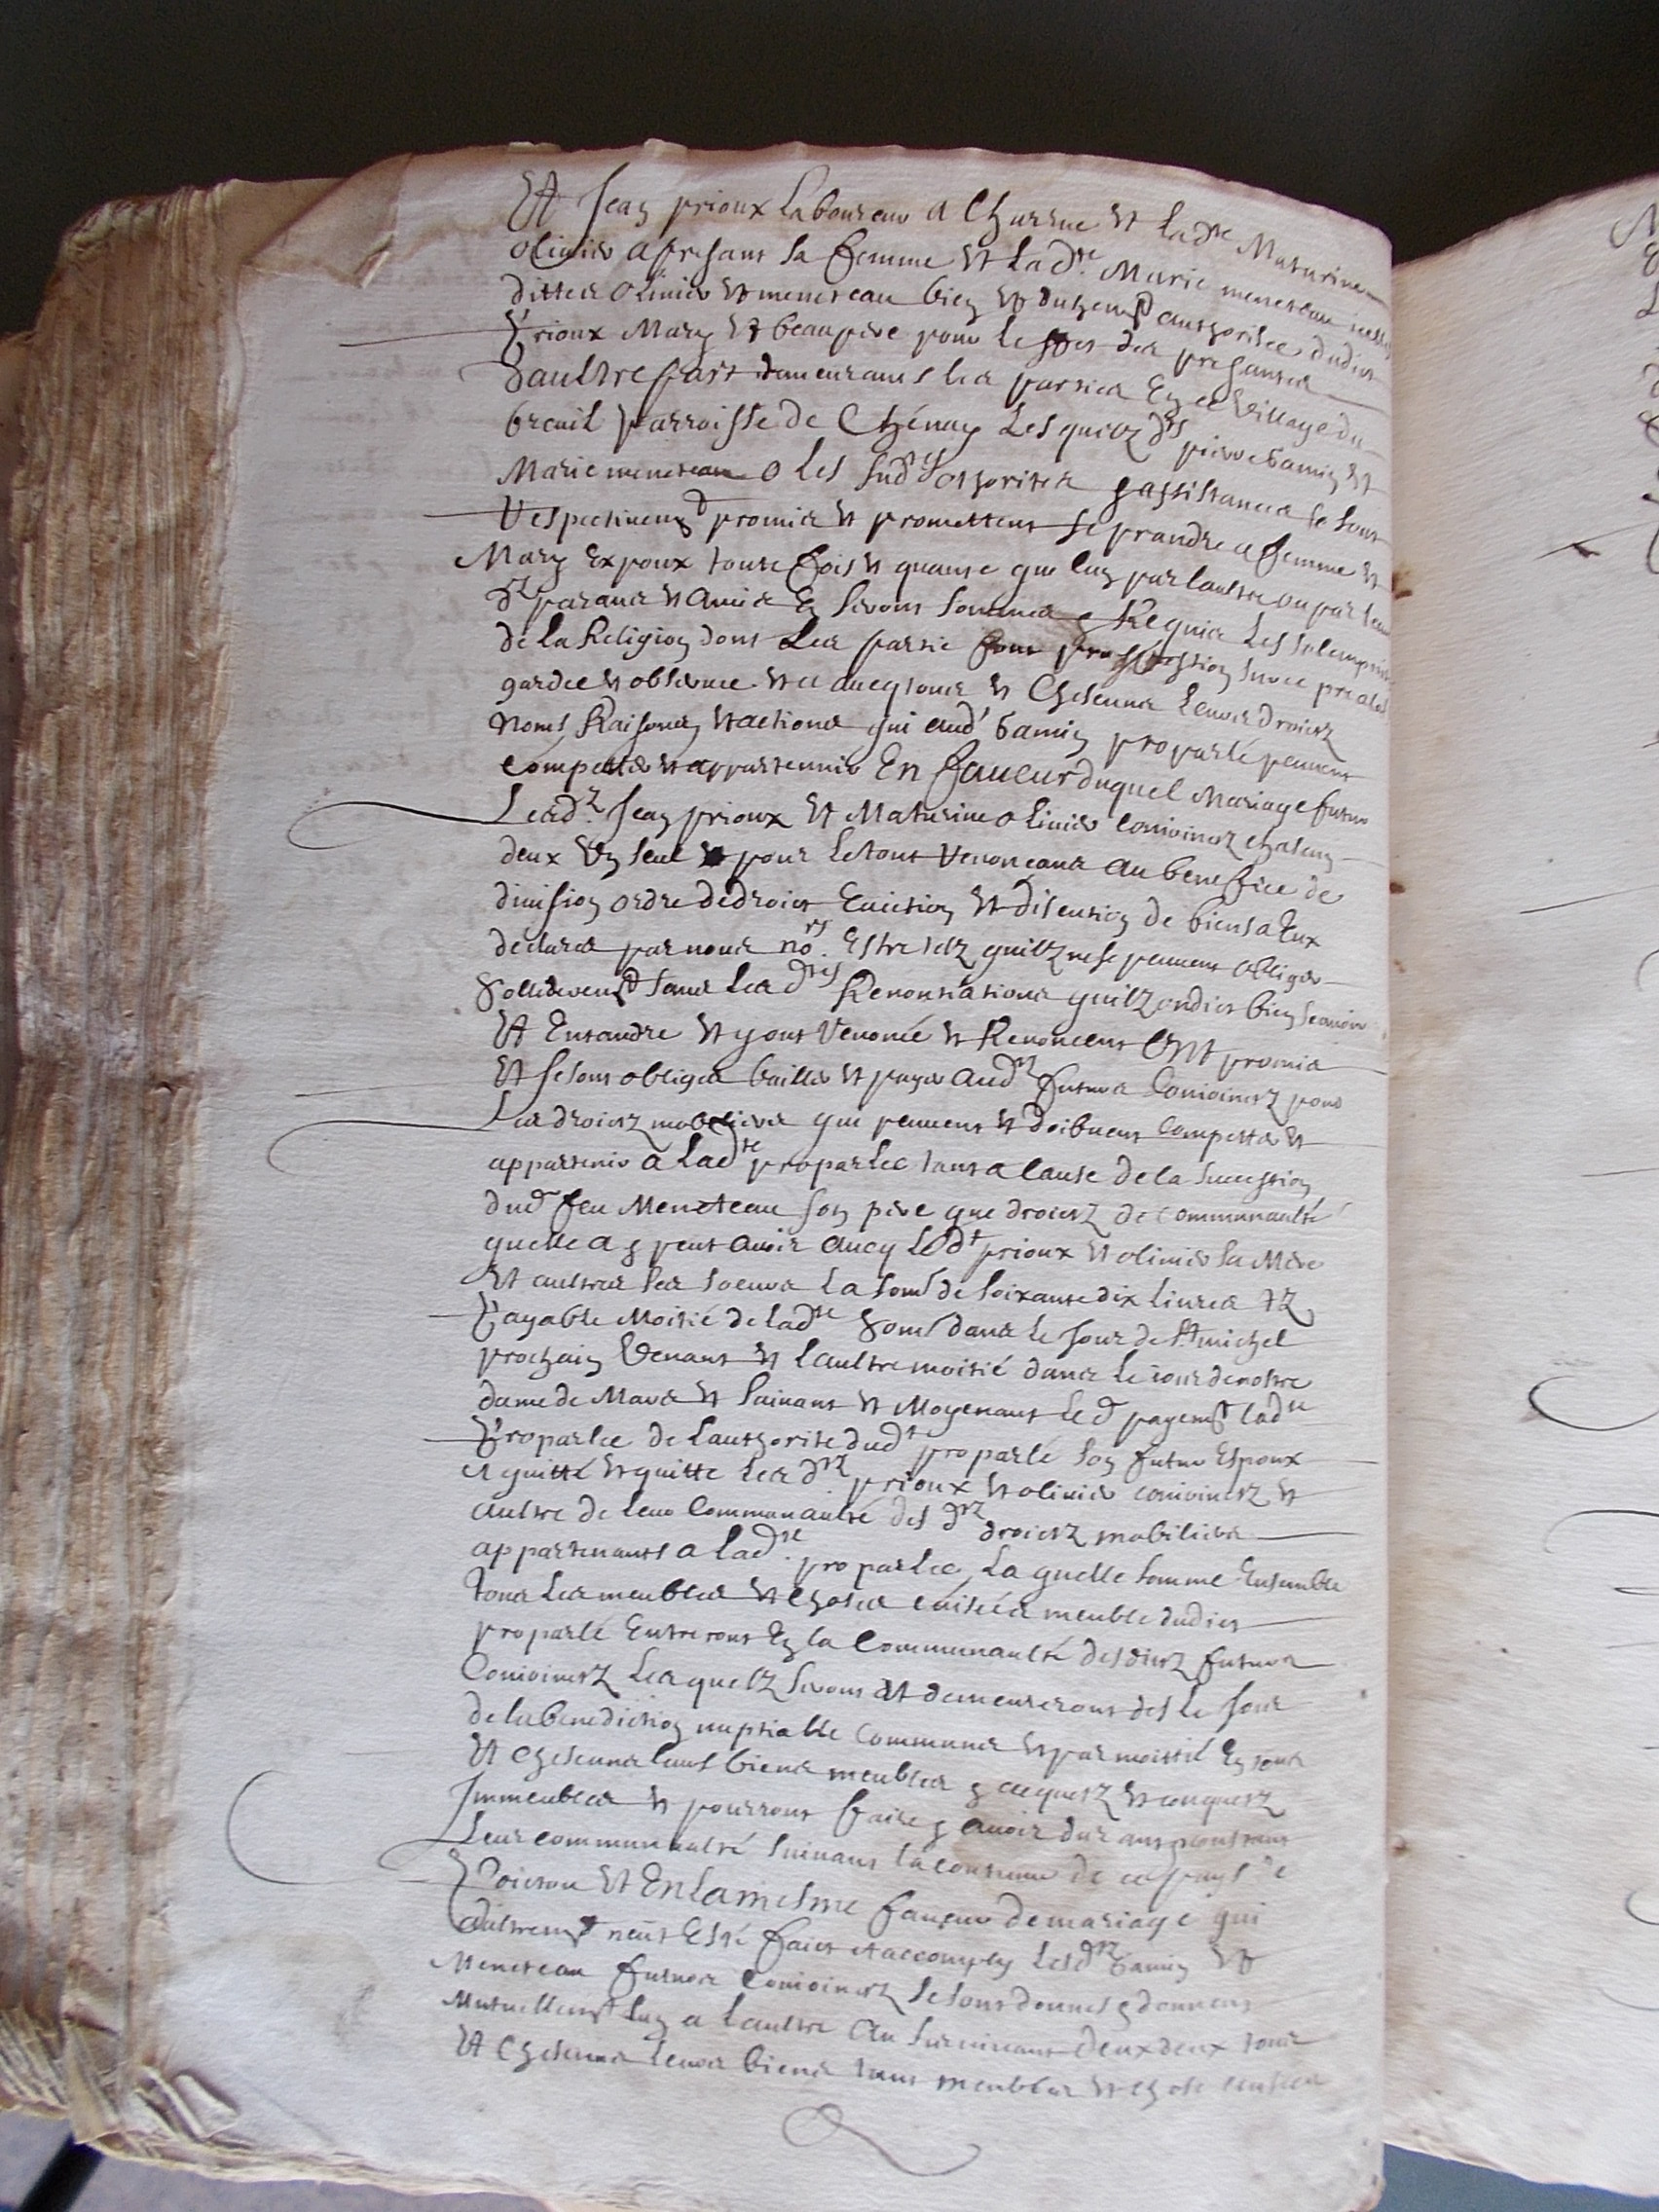 Et Jean prioux laboureur a Charrue Et lad.te Maturine
olivier a presant sa femme Et lad.te Marie meneteau icelles
dittes olivier et meneteau bien et duhemt authorisee dudict
Prioux Mary Et beaupere pour le des presantes
daultre part demeurans les parties En ce Village du
breuil parroisse de Chénay Lesquelz dts et
Marie meneteau o les sud authorites & assistances se sont
Respectivemt promis et promettent se prandre a femme et
Mary Expoux toute fois et quante que lun par laultre ou par leur
dts parans et amis En seront sommes & Requis Les solempnites
de la Religion dont Les partie font proffession
gardee et observee et ce avecq tous et Chescuns leurs droictz
Noms Raisons et actions qui aud proparlé peuvent
Compecter et appartennir En faveur duquel Mariage futur
Lesd.z Jean prioux Et Maturine olivier conioinctz chascun
deux Un seul et pour le tout Renonceans au benefice de
division ordre de droict Eviction Et discution de biens a Eux
declares par nous no.rs Estre telz quilz ne se peuvent obliger
Sollideremt sans Les dtes Renontiations quilz ont dict bien scavoir
Et Entandre et y ont Renoncé et Renoncent Ont promis
Et se sont obliges bailler et payer ausd.tz futurs Conioinctz pour
Les droictz mobiliers qui peuvent et doibvent Compecter et
appartenir a lad.te proparlee tant a cause de la sucession
dud feu Meneteau son pere que droictz de communaulté
quelle a & peut avoir avecq led.t prioux et olivier sa Mere
Et aultres ses soeurs la som de soixante dix livres tz
Payable Moitié de lad.te Som dans le Jour de St michel
prochain Venant et laultre moitié dans le iour de nostre
dame de Mars et suivant et Moyenant led payemt lad.te
Proparlee de lauthorite dud.t proparlé son futur Espoux
a quitté et quitte les d.tz prioux et olivier conioinctz et
aultre de leur Communaulté des d.tz droictz mobiliers
appartenants a lad.te proparlee, La quelle somme Ensemble
tous Les meubles et choses censées meuble dudict
proparlé Entreront En la Communaulté desdictz futurs
Conioinctz Lesquelz seront Et demeureront des le Jour
de la benediction nuptialle Communs et par moittié En tous
Et Chescuns leurs biens meubles & acquetz et conquetz
Immeubles et pourront faire & avoir durant & constant
Leur communaulté suivant la coutume de ce pays de
Poictou Et En la mesme faveur de mariage qui
aultremt neut Esté faict et accomply Lesd.tz et
Meneteau futurs Conioinctz se sont donnes & donnent
Mutuellemt lun a laultre au survivant deux deux tous
Et Chescuns leurs biens tant meubles et chose censees